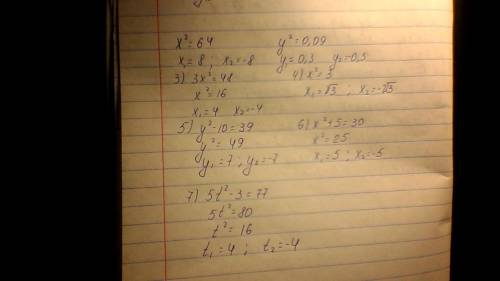 x²=64 y²=0,09
x₁=8 ; x₂=-8 y₁=0,3 y₂=0,3
3) 3x²=48 4) x²=3
x²=16 x₁=√3 ; x₂=-√3
x₁=4 x₂=-4
5) y²-10=39 6) x²+5=30
y²=49 x²=25
y₁=7 , y₂=-7 x₁=5 ; x₂=-5
7) 5t²-3=77
5t²=80
t²=16
t₁=4 ; t₂=-4